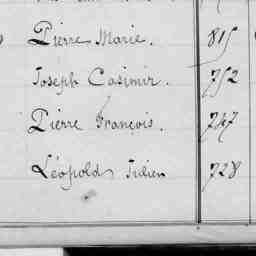 Pierre Marie. 815
Joseph Casimir. 752
Pierre François. 747
Léopold Julien 728